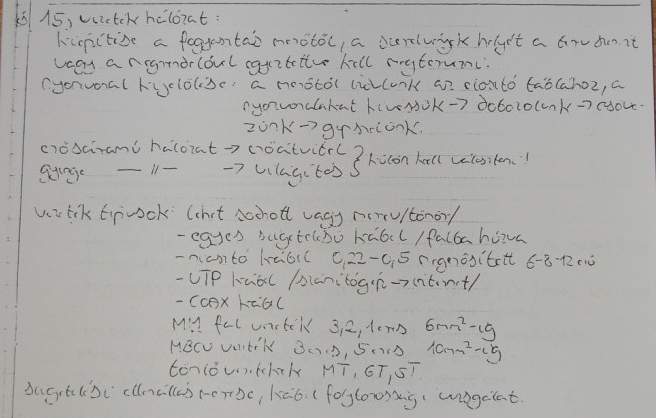 15, vezeték hálózat:
kiépítése a fogyasztás mérőtől, a szerelvények helyét a
vagy a megrendelővel egyeztetve kell megtervezni.
nyomvonal kijelölése: a mérőtől indulunk az elosztó táblához, a
nyomvonalakat kivessük → dobozolunk → csöve-
zünk → gipszelünk.
erősáramú hálózat → erőátvitel } külön kell választani!
gyenge — 11 — → világítás
vezeték típusok: lehet sodrott vagy merev/tömör/
- egyes szigetelésű kábel /falba húzva
- riasztó kábel 0,22-0,5 6-8-12 erű
- UTP kábel /számítógép → internet/
- COAX kábel
MM fal vezeték 3,2,1 eres 6mm²-ig
MBCU vezeték 3 eres, 5 eres 10mm²-ig
tömlővezetékek MT, GT, ST
szigetelési ellenállás mérése, kábel folytonossági vizsgálat.